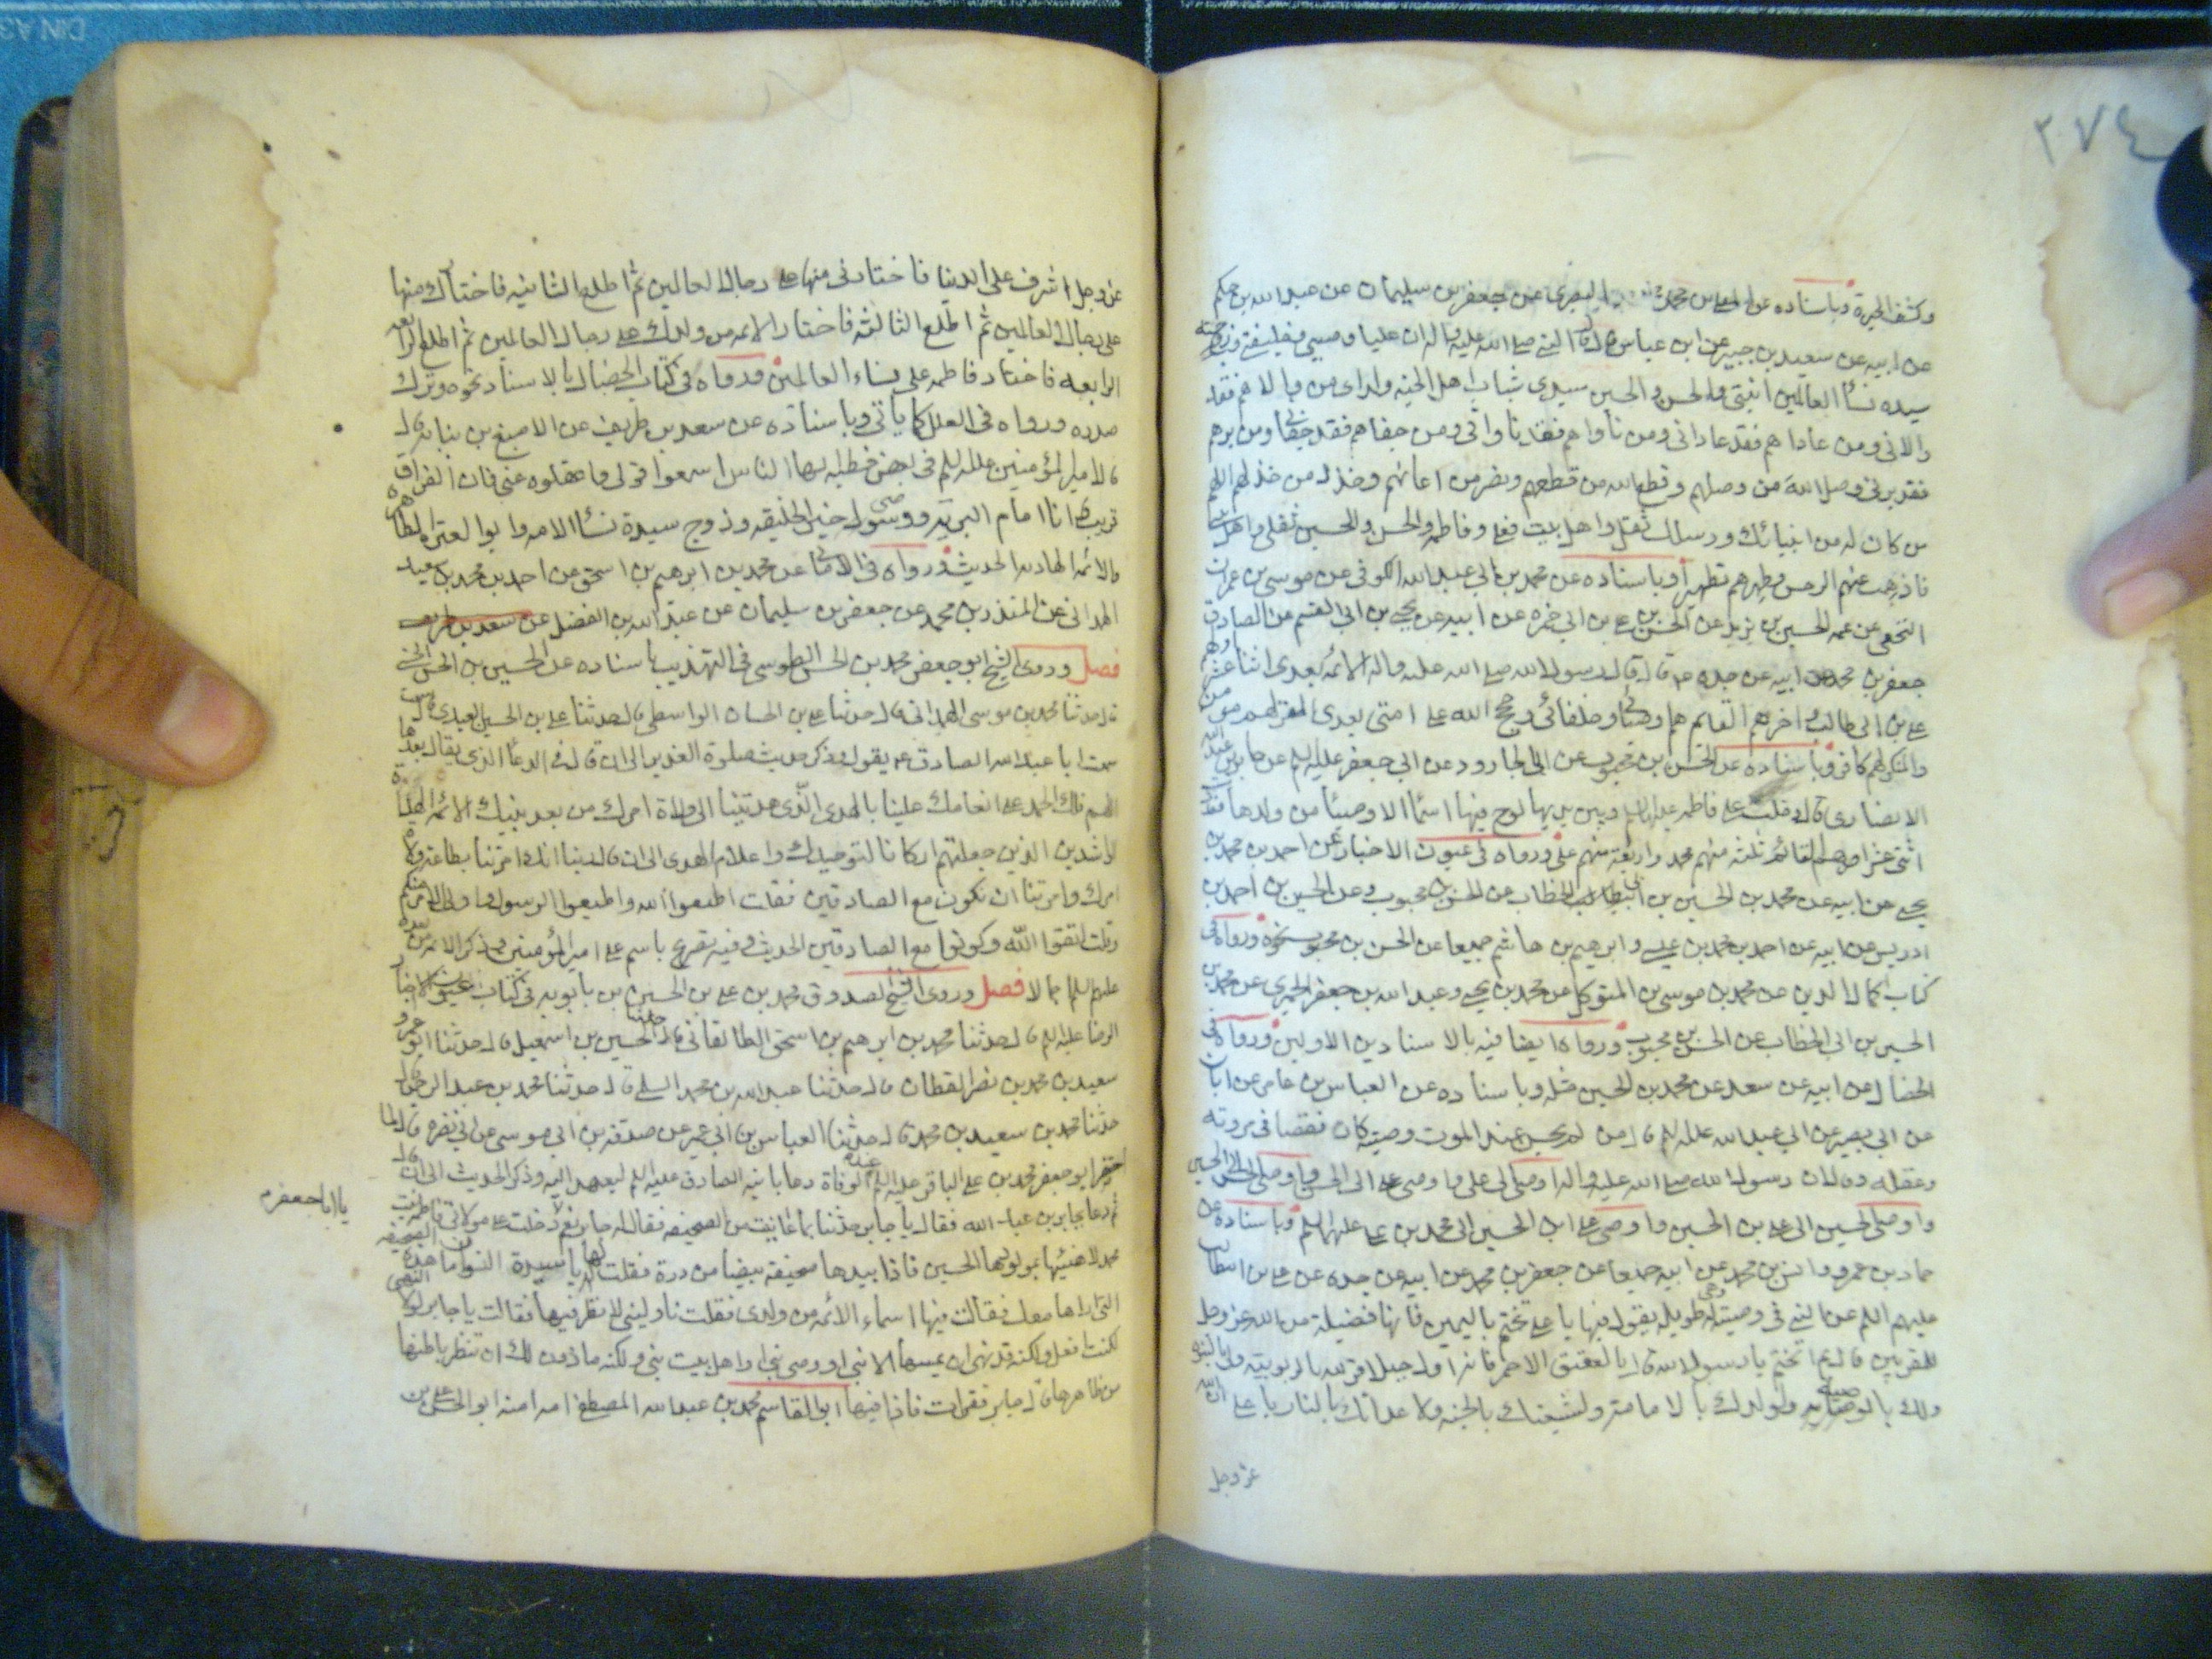 ٢٧٤
وكشف الحيرة وباسناده عن المعلى بن محمد البصري عن جعفر بن سليمان عن عبد الله بن حكم
عن ابيه عن سعيد بن جبير عن ابن عباس قال قال النبي صلى الله عليه واله ان عليا وصيي وخليفتي وزوجته
سيده نساء العالمين ابنتي والحسن والحسين سيدي شباب اهل الجنه ولداي من والاهم فقد
والاني ومن عاداهم فقد عاداني ومن ناواهم فقد ناواني ومن جفاهم فقد جفاني ومن برهم
فقد برني وصل الله من وصلهم وقطع الله من قطعهم ونصر من اعانهم وخذل من خذلهم اللهم
من كان له من انبيائك ورسلك ثقل واهل بيت فعلي وفاطمه والحسن والحسين ثقلي واهل بيتي
فاذهب عنهم الرجس وطهرهم تطهيرا وباسناده عن محمد بن ابي عبد الله الكوفي عن موسى بن عمران
النخعي عن عمه الحسين بن يزيد عن الحسن بن علي بن ابي حمزه عن ابيه عن يحيى بن ابي القسم عن الصادق
جعفر بن محمد عن ابيه عن جده ع قال قال رسول الله صلى الله عليه واله الائمه بعدي اثنا عشر اولهم
علي بن ابي طالب واخرهم القائم هم اوصيائي وخلفائي وحجج الله على امتي بعدي المقر لهم مومن
والمنكر لهم كافر وباسناده عن الحسن بن محبوب عن ابي الجارود عن ابي جعفر عليه السلم عن جابر بن عبد الله
الانصاري قال دخلت على فاطمه عليها السلم وبين يديها لوح فيها اسماء الاوصياء من ولدها فعددت
اثنى عشر اخرهم القائم ثلثه منهم محمد واربعة منهم علي ورواه في عيون الاخبار عن احمد بن محمد بن
يحيى عن ابيه عن محمد بن الحسين بن ابي الخطاب عن الحسن بن محبوب وعن الحسين بن احمد بن
ادريس عن ابيه عن احمد بن محمد بن عيسى وابرهيم بن هاشم جميعا عن الحسن بن محبوب نحوه ورواه في
كتاب اكمال الدين عن محمد بن موسى بن المتوكل عن محمد بن يحيى وعبد الله بن جعفر الحميري عن محمد بن
الحسين بن ابي الخطاب عن الحسن بن محبوب ورواه ايضا فيه بالاسنادين الاولين ورواه في
الخصال عن ابيه عن سعد عن محمد بن الحسين مثله وباسناده عن العباس بن عامر عن ابان
عن ابي بصير عن ابي عبد الله عليه السلم قال من لم يحسن عند الموت وصيته كان نقصا في مروته
وعقله وقال ان رسول الله صلى الله عليه واله اوصى الى علي واوصى علي الى الحسن واوصى الحسن الى الحسين
واوصى الحسين الى علي بن الحسين واوصى علي بن الحسين الى محمد بن علي عليهم السلم وباسناده عن
حماد بن عمرو وانس بن محمد عن ابيه جميعا عن جعفر بن محمد عن ابيه عن جده عن علي بن ابيطالب
عليهم السلم عن النبي في وصيته له طويله يقول فيها يا علي تختم باليمين فانها فضيلة من الله عز وجل
للمقربين قال بم اتختم يا رسول الله قال بالعقيق الاحمر فانه اول جبل اقر لله بالربوبيه ولي بالنبوة
ولك بالوصيه ولولدك بالامامة ولشيعتك بالجنه ولاعدائك بالنار يا علي ان الله
عز وجل
عز وجل اشرف على الدنيا فاختارني منها على رجال العالمين ثم اطلع الثانيه فاختارك منها
على رجال العالمين ثم اطلع الثالثه فاختار الائمه من ولدك على رجال العالمين ثم اطلع الرابعه
الرابعه فاختار فاطمه على نساء العالمين ورواه في كتاب الخصال بالاسناد نحوه وترك
صدره ورواه في العلل كما ياتي وباسناده عن سعد بن طريف عن الاصبغ بن نباته قال
قال امير المؤمنين عليه السلم في بعض خطبه ايها الناس اسمعوا قولي واعقلوه عني فان الفراق
قريب انا امام البريه ووصي خير الخليقه وزوج سيدة نساء الامه وابو العترة الطاهره
والائمه الهاديه الحديث ورواه في الامالي عن محمد بن ابرهيم بن اسحق عن احمد بن محمد بن سعيد
الهمداني عن المنذر بن محمد عن جعفر بن سليمان عن عبد الله بن الفضل عن سعد بن طريف
فصل وروى الشيخ ابو جعفر محمد بن الحسن الطوسي في التهذيب باسناده عن الحسين بن الحسن الحسني
قال حدثنا محمد بن موسى الهمداني قال حدثنا علي بن الحسان الواسطي قال حدثنا علي بن الحسين العبدي قال سمعت
سمعت ابا عبد الله الصادق ع يقول وذكر حديث صلوة الغدير الى ان قال في الدعاء الذي يقال بعدها
اللهم فلك الحمد على انعامك علينا بالهدى الذي هديتنا الى ولاة امرك من بعد نبيك الائمه الهداة
الراشدين الذين جعلتهم اركانا لتوحيدك واعلام الهدى الى ان قال ربنا انك امرتنا بطاعة ولاة
امرك وامرتنا ان نكون مع الصادقين فقلت اطيعوا الله واطيعوا الرسول واولي الامر منكم
وقلت اتقوا الله وكونوا مع الصادقين الحديث وفيه تصريح باسم علي امير المؤمنين وذكر الائمه من ولده
عليهم السلم اجمالا فصل وروى الشيخ الصدوق محمد بن علي بن الحسين بن بابويه في كتاب عيون الاخبار
الرضا عليه السلم قال حدثنا محمد بن ابرهيم بن اسحق الطالقاني قال حدثنا الحسين بن اسمعيل قال حدثنا ابو عمرو
سعيد بن محمد بن نصر القطان قال حدثنا عبد الله بن محمد السلمي قال حدثنا محمد بن عبد الرحمن قال
حدثنا محمد بن سعيد بن محمد قال حدثنا العباس بن ابي عمير عن صدقة بن ابي موسى عن ابي نضره قال لما
احتضر ابو جعفر محمد بن علي الباقر عليه السلم عند الوفاة دعا بابنه الصادق عليه السلم ليعهد اليه وذكر الحديث الى ان قال
ثم دعا بجابر بن عبد الله فقال يا جابر حدثنا بما عاينت من الصحيفه فقال له جابر نعم دخلت على مولاتي فاطمه بنت
يا ابا جعفر
محمد لاهنئها بمولودها الحسين فاذا بيدها صحيفه بيضاء من درة فقلت لها يا سيدة النسوان ما هذه الصحيفه
التي اراها معك فقالت فيها اسماء الائمه من ولدي فقلت ناوليني لانظر فيها فقالت يا جابر لولا النهي
لكنت افعل ولكنه قد نهى ان يمسها الا نبي او وصي نبي او اهل بيت نبي ولكنه ماذون لك ان تنظر باطنها
من ظاهرها قال جابر فقرات فاذا فيها ابو القاسم محمد بن عبد الله المصطفى امه امنه ابو الحسن علي بن